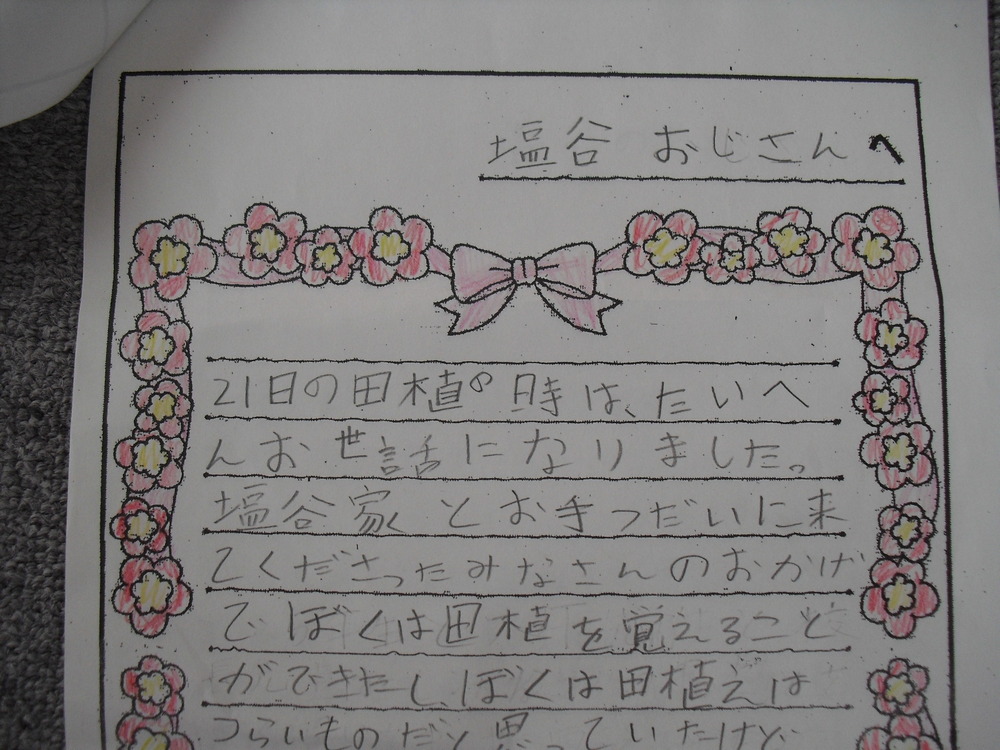 塩谷 おじさんへ
21日の田植の時は、たいへ
んお世話になりました。
塩谷家とお手つだいに来
てくださったみなさんのおかげ
でぼくは田植を覚えること
ができたし、ぼくは田植えは
つらいものだと思っていたけど